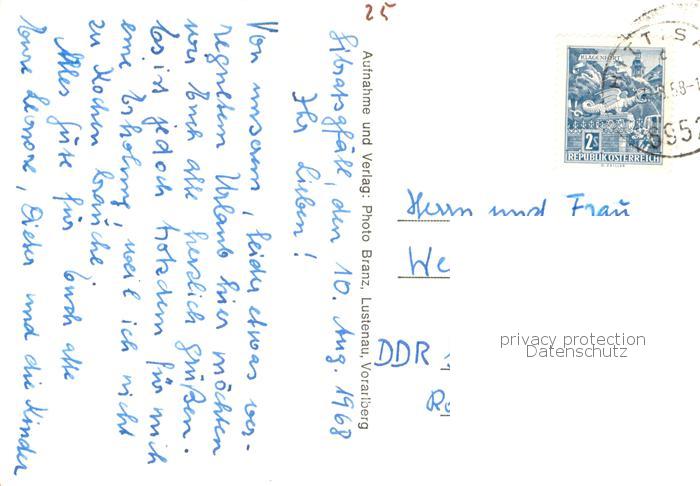 25
Sibratsgfäll, den 10. Aug. 1968
Ihr Lieben!
Von unserem, leider etwas ver-
regnetem Urlaub hier möchten
wir Euch alle herzlich grüßen.
Es ist jedoch trotzdem für mich
eine Erholung, weil ich nicht
zu kochen brauche.
Alles Gute für Euch alle
Eure Leonore, Dieter und die Kinder
Aufnahme und Verlag: Photo Branz, Lustenau, Vorarlberg
KLAGENFURT
2S
REPUBLIK ÖSTERREICH
6952
Herrn und Frau
We
DDR
Ro
privacy protection
Datenschutz